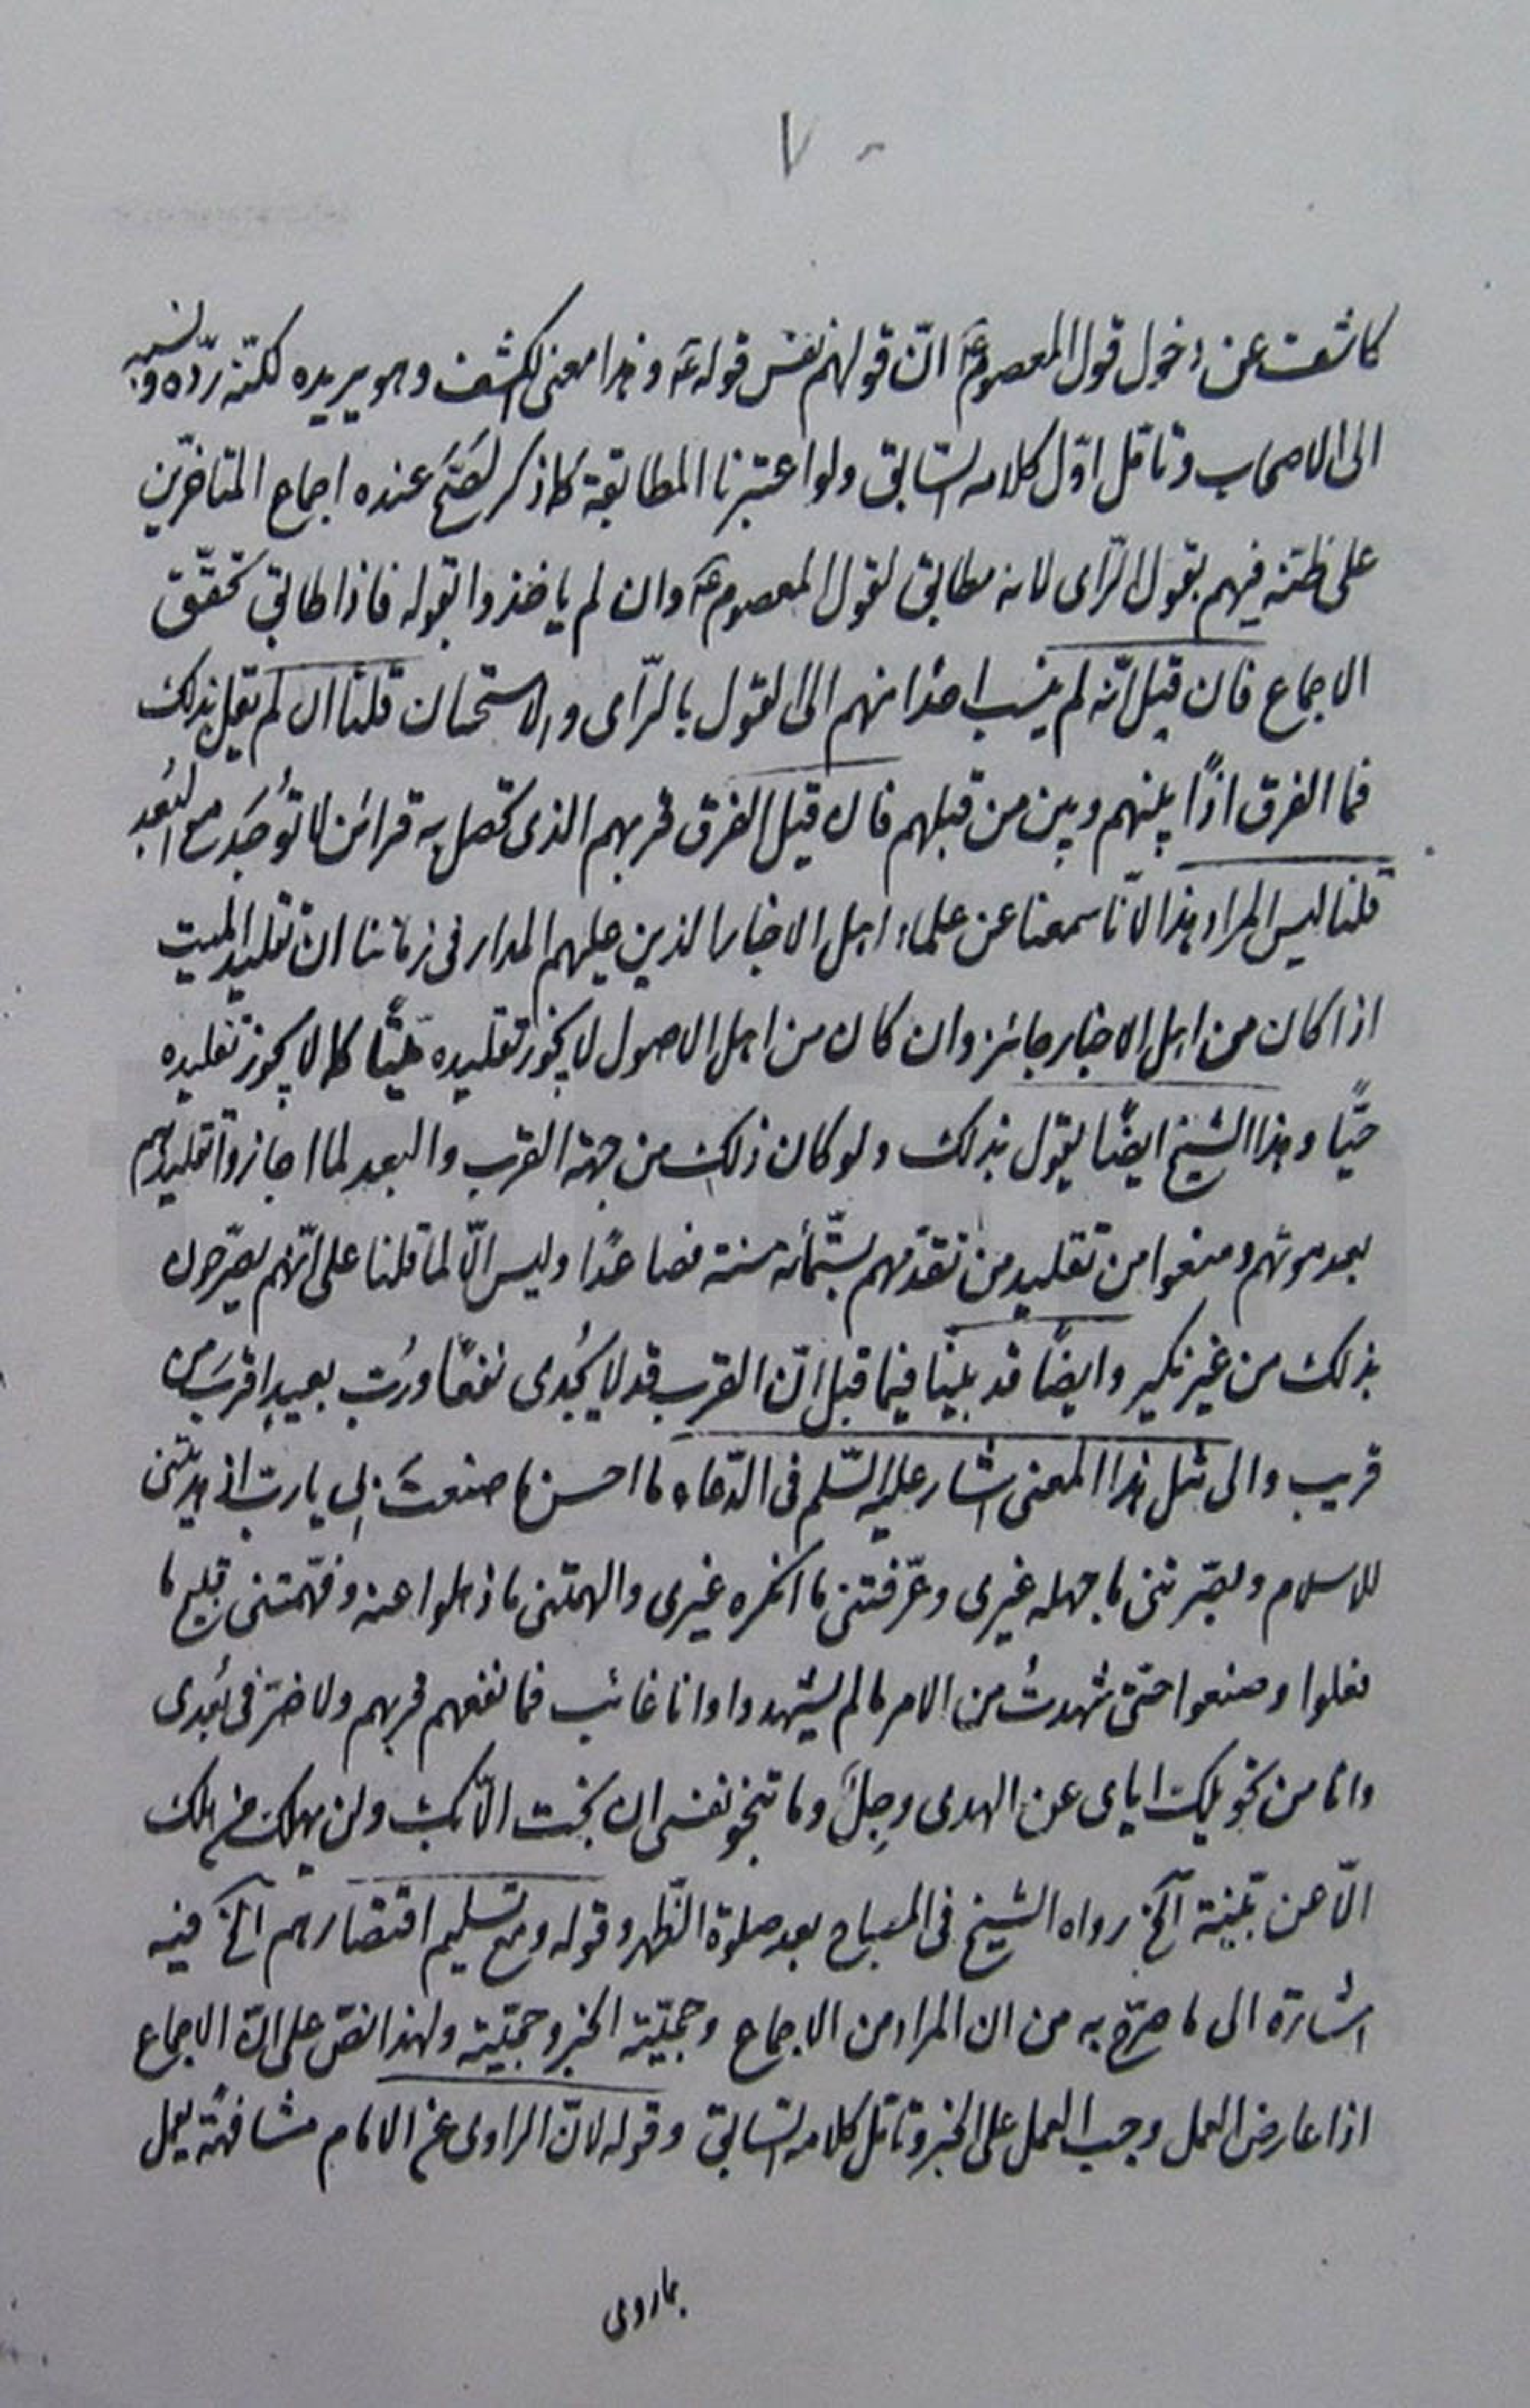 ٧
كاشف عن دخول قول المعصوم ع انّ قولهم نفس قوله ع وهذا معنى الكشف وهو يريده لكنّه ردّه ونسبه
الى الاصحاب وتامّل اوّل كلامه السّابق ولو اعتبرنا المطابقة كما ذكر لصحّ عنده اجماع المتاخرّين
على ظنّه فيهم بقول الرّاى لانه مطابق لقول المعصوم ع وان لم ياخذوا بقوله فاذا طابق تحقّق
الاجماع فان قيل انّه لم ينسب احدًا منهم الى القول بالرّاى والاستحسان قلنا ان لم يقل بذلك
فما الفرق اذًا بينهم وبين من قبلهم فان قيل الفرق قربهم الذى تحصل به قرائن لا تُوجَد مع البُعد
قلنا ليس المراد هذا لانّا سمعنا عن علماء اهل الاخبار الذين عليهم المدار فى زماننا ان تقليد الميت
اذا كان من اهل الاخبار جائز وان كان من اهل الاصول لا يجوز تقليده ميّتًا كما لا يجوز تقليده
حيًّا وهذا الشيخ ايضًا يقول بذلك ولو كان ذلك من جهة القرب والبعد لما اجازوا تقليدهم
بعد موتهم ومنعوا من تقليد من تقدّمهم بستّمائة سنة فصاعدًا وليس الّا لما قلنا على انّهم يصرّحون
بذلك من غير نكير وايضًا قد بيّنّا فيما قبل انّ القرب قد لا يُجدى نفعًا ورُبّ بعيدٍ اقربَ من
قريب والى مثل هذا المعنى اشار عليه السّلم فى الدّعاء ما احسن ما صنعتَ بى يا ربّ اذ هديتنى
للاسلام وبصّرتنى ما جهله غيرى وعرّفتنى ما انكره غيرى والهمتنى ما ذهلوا عنه وفهّمتنى قبيح ما
فعلوا وصنعوا حتى شهدتُ من الامر ما لم يشهدوا وانا غائب فما نفعهم قربهم ولا ضرّنى بُعدى
وانا من تحويلك اياى عن الهدى وجِلٌ وما تنجو نفسى ان نجت الّا بك ولن يهلك من هلك
الّا عن بيّنة آلخ رواه الشيخ فى المصباح بعد صلوة الظّهر وقوله ومع تسليم اقتصارهم آلخ فيه
اشارة الى ما صرّح به من ان المراد من الاجماع وحجيّته الخبر وحجيّته ولهذا نصّ على انّ الاجماع
اذا عارض العمل وجب العمل على الخبر وتامّل كلامه السّابق وقوله لانّ الراوى عن الامام مشافهةً يعمل
بما روى